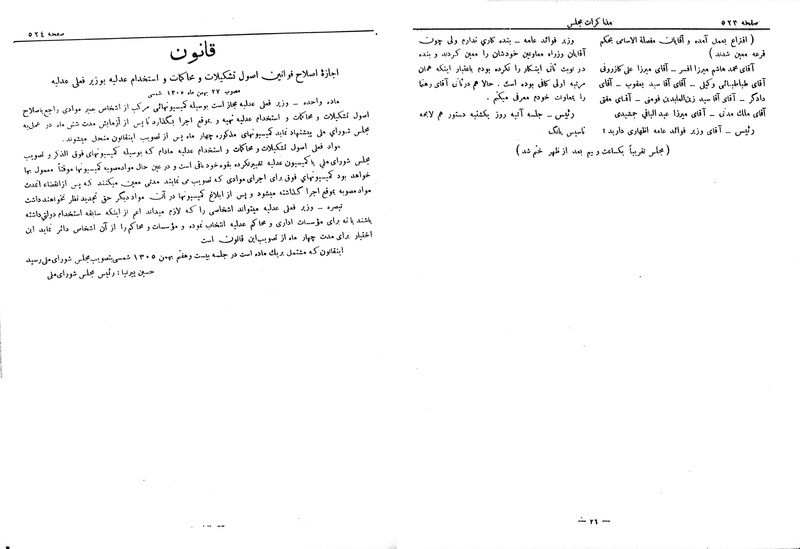 صفحه ۵۲۳
مذاکرات مجلس
( اقتراع بعمل آمده و آقایان مفصلة الاسامی بحکم
قرعه معین شدند )
آقای محمد هاشم میرزا افسر ــ آقای میرزا علی کازرونی
آقای طباطبائی وکیلی ــ آقای آقا سید یعقوب ــ آقای
دادگر ــ آقای آقا سید زین‌العابدین فومنی ــ آقای مفتی
آقای ملک مدنی ــ آقای میرزا عبدالباقی جمشیدی
رئیس ــ آقای وزیر فوائد عامه اظهاری دارید ؟
وزیر فوائد عامه ــ بنده کاری ندارم ولی چون
آقایان وزراء معاونین خودشان را معین کردند و بنده
در نوبت ثانی اینکار را نکرده بودم باعتبار اینکه همان
مرتبه اولی کافی بوده است . حالا هم در ثانی آقای رهنما
را بمعاونت خودم معرفی میکنم .
رئیس ــ جلسه آتیه روز یکشنبه دستور هم لایحه
تاسیس بانک
( مجلس تقریباً یکساعت و نیم بعد از ظهر ختم شد )
ــ ۲۶ ــ
صفحه ۵۲۴
قانون
اجازهٔ اصلاح قوانین اصول تشکیلات و محاکمات و استخدام عدلیه بوزیر فعلی عدلیه
مصوب ۲۷ بهمن ماه ۱۳۰۵ شمسی
ماده واحده ــ وزیر فعلی عدلیه مجاز است بوسیله کمیسیونهائی مرکب از اشخاص بصیر موادی راجع باصلاح
اصول تشکیلات و محاکمات و استخدام عدلیه تهیه و بموقع اجرا بگذارد تا پس از آزمایش مدت شش ماه در عمل به
مجلس شورای ملی پیشنهاد نماید کمیسیونهای مذکوره چهار ماه پس از تصویب اینقانون منحل میشوند .
مواد فعلی اصول تشکیلات و محاکمات و استخدام عدلیه مادام که بوسیله کمیسیونهای فوق الذکر و تصویب
مجلس شورای ملی یا کمیسیون عدلیه تغییر نکرده بقوه خود باقی است و در عین حال مواد مصوبه کمیسیونها موقتاً معمول بها
خواهد بود کمیسیونهای فوق برای اجرای موادی که تصویب می نمایند مدتی معین میکنند که پس از انقضاء آنمدت
مواد مصوبه بموقع اجرا گذاشته میشود و پس از ابلاغ کمیسیونها در آن مواد دیگر حق تجدید نظر نخواهند داشت
تبصره ــ وزیر فعلی عدلیه میتواند اشخاصی را که لازم میداند اعم از اینکه سابقه استخدام دولتی داشته
باشند یا نه برای مؤسسات اداری و محاکم عدلیه انتخاب نموده و مؤسسات و محاکم را از آن اشخاص دائر نماید این
اختیار برای مدت چهار ماه از تصویب این قانون است
اینقانون که مشتمل بر یک ماده است در جلسه بیست و هفتم بهمن ۱۳۰۵ شمسی بتصویب مجلس شورای ملی رسید
حسین پیرنیا : رئیس مجلس شورای ملی